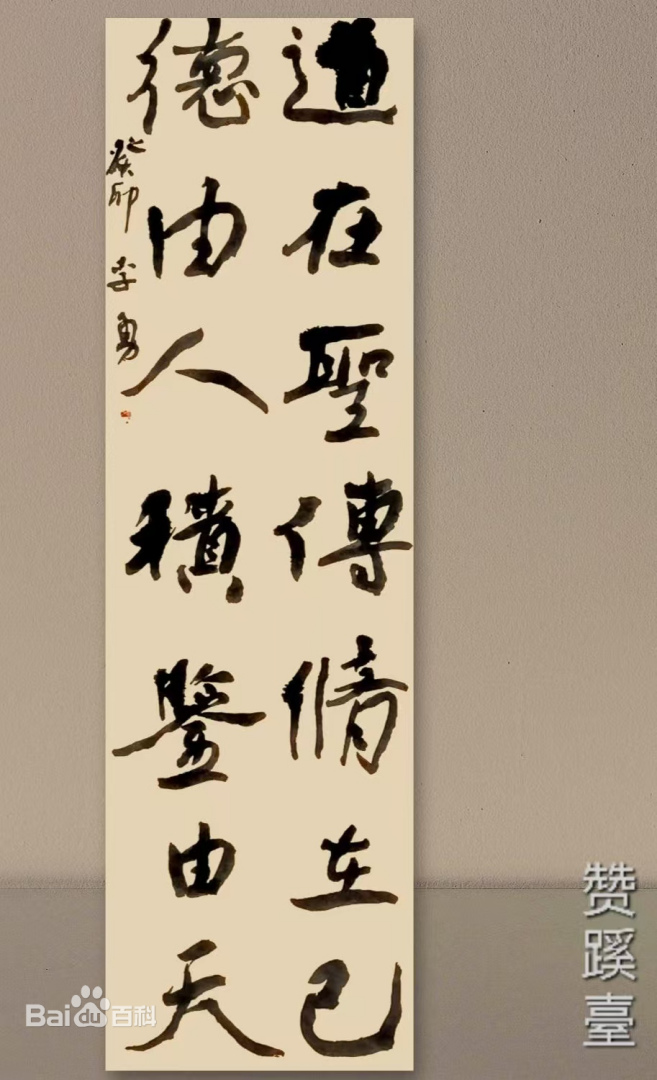 道在聖傳脩在己
德由人積鑒由天
癸卯 李勇
赞蹊臺
Baidu百科